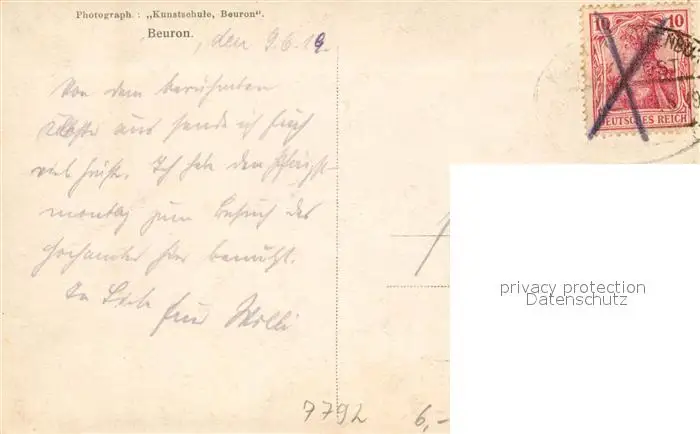 Photograph.: „Kunstschule, Beuron“.
Beuron.
, den 9.6.19.
Von dem berühmten
aus sende ich Euch
viel Grüße. Ich hab den Pfingst-
montag zum Besuch des
Hochamtes hier benützt.
In Liebe
Euer Willi
10 10
DEUTSCHES REICH
privacy protection
Datenschutz
7792
6,-